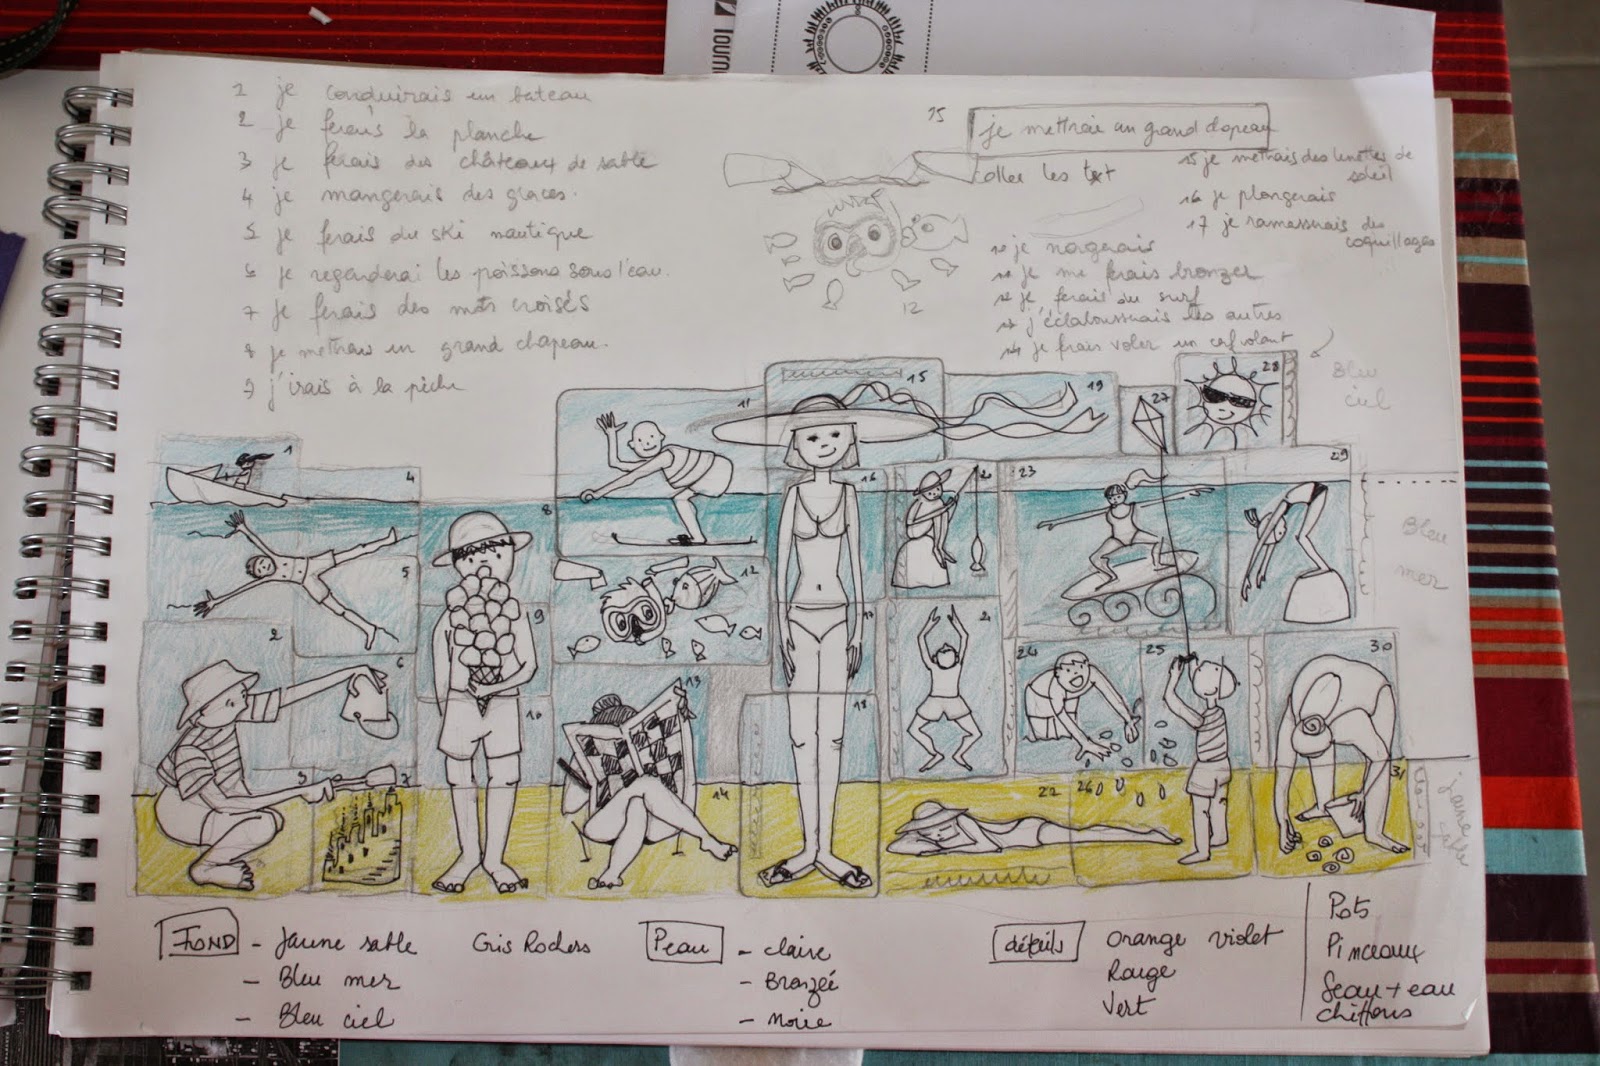 1 je conduirais un bateau
2 je ferais la planche
3 je ferais des châteaux de sable
4 je mangerais des glaces.
5 je ferais du ski nautique
6 je regarderai les poissons sous l'eau.
7 je ferais des mots croisés
8 je mettrais un grand chapeau.
9 j'irais à la pêche
15 je mettrai un grand chapeau
coller les text
15 je mettrais des lunettes de
soleil
16 je plongerais
17 je ramasserais des
coquillages
10 je nagerais
11 je me ferais bronzer
12 je ferais du surf
13 j'éclabousserais les autres
14 je ferais voler un cerf volant
12
Bleu
ciel
Bleu
mer
jaune
sable
1
4
8
11
15
19
27
28
5
2
6
9
12
16
20
23
29
3
7
10
13
14
17
18
21
24
25
22
26
30
31
FOND - Jaune sable
- Bleu mer
- Bleu ciel
Gris Rochers
Peau - claire
- Bronzée
- Noire
détails Orange violet
Rouge
Vert
Pots
Pinceaux
Seau + eau
chiffons